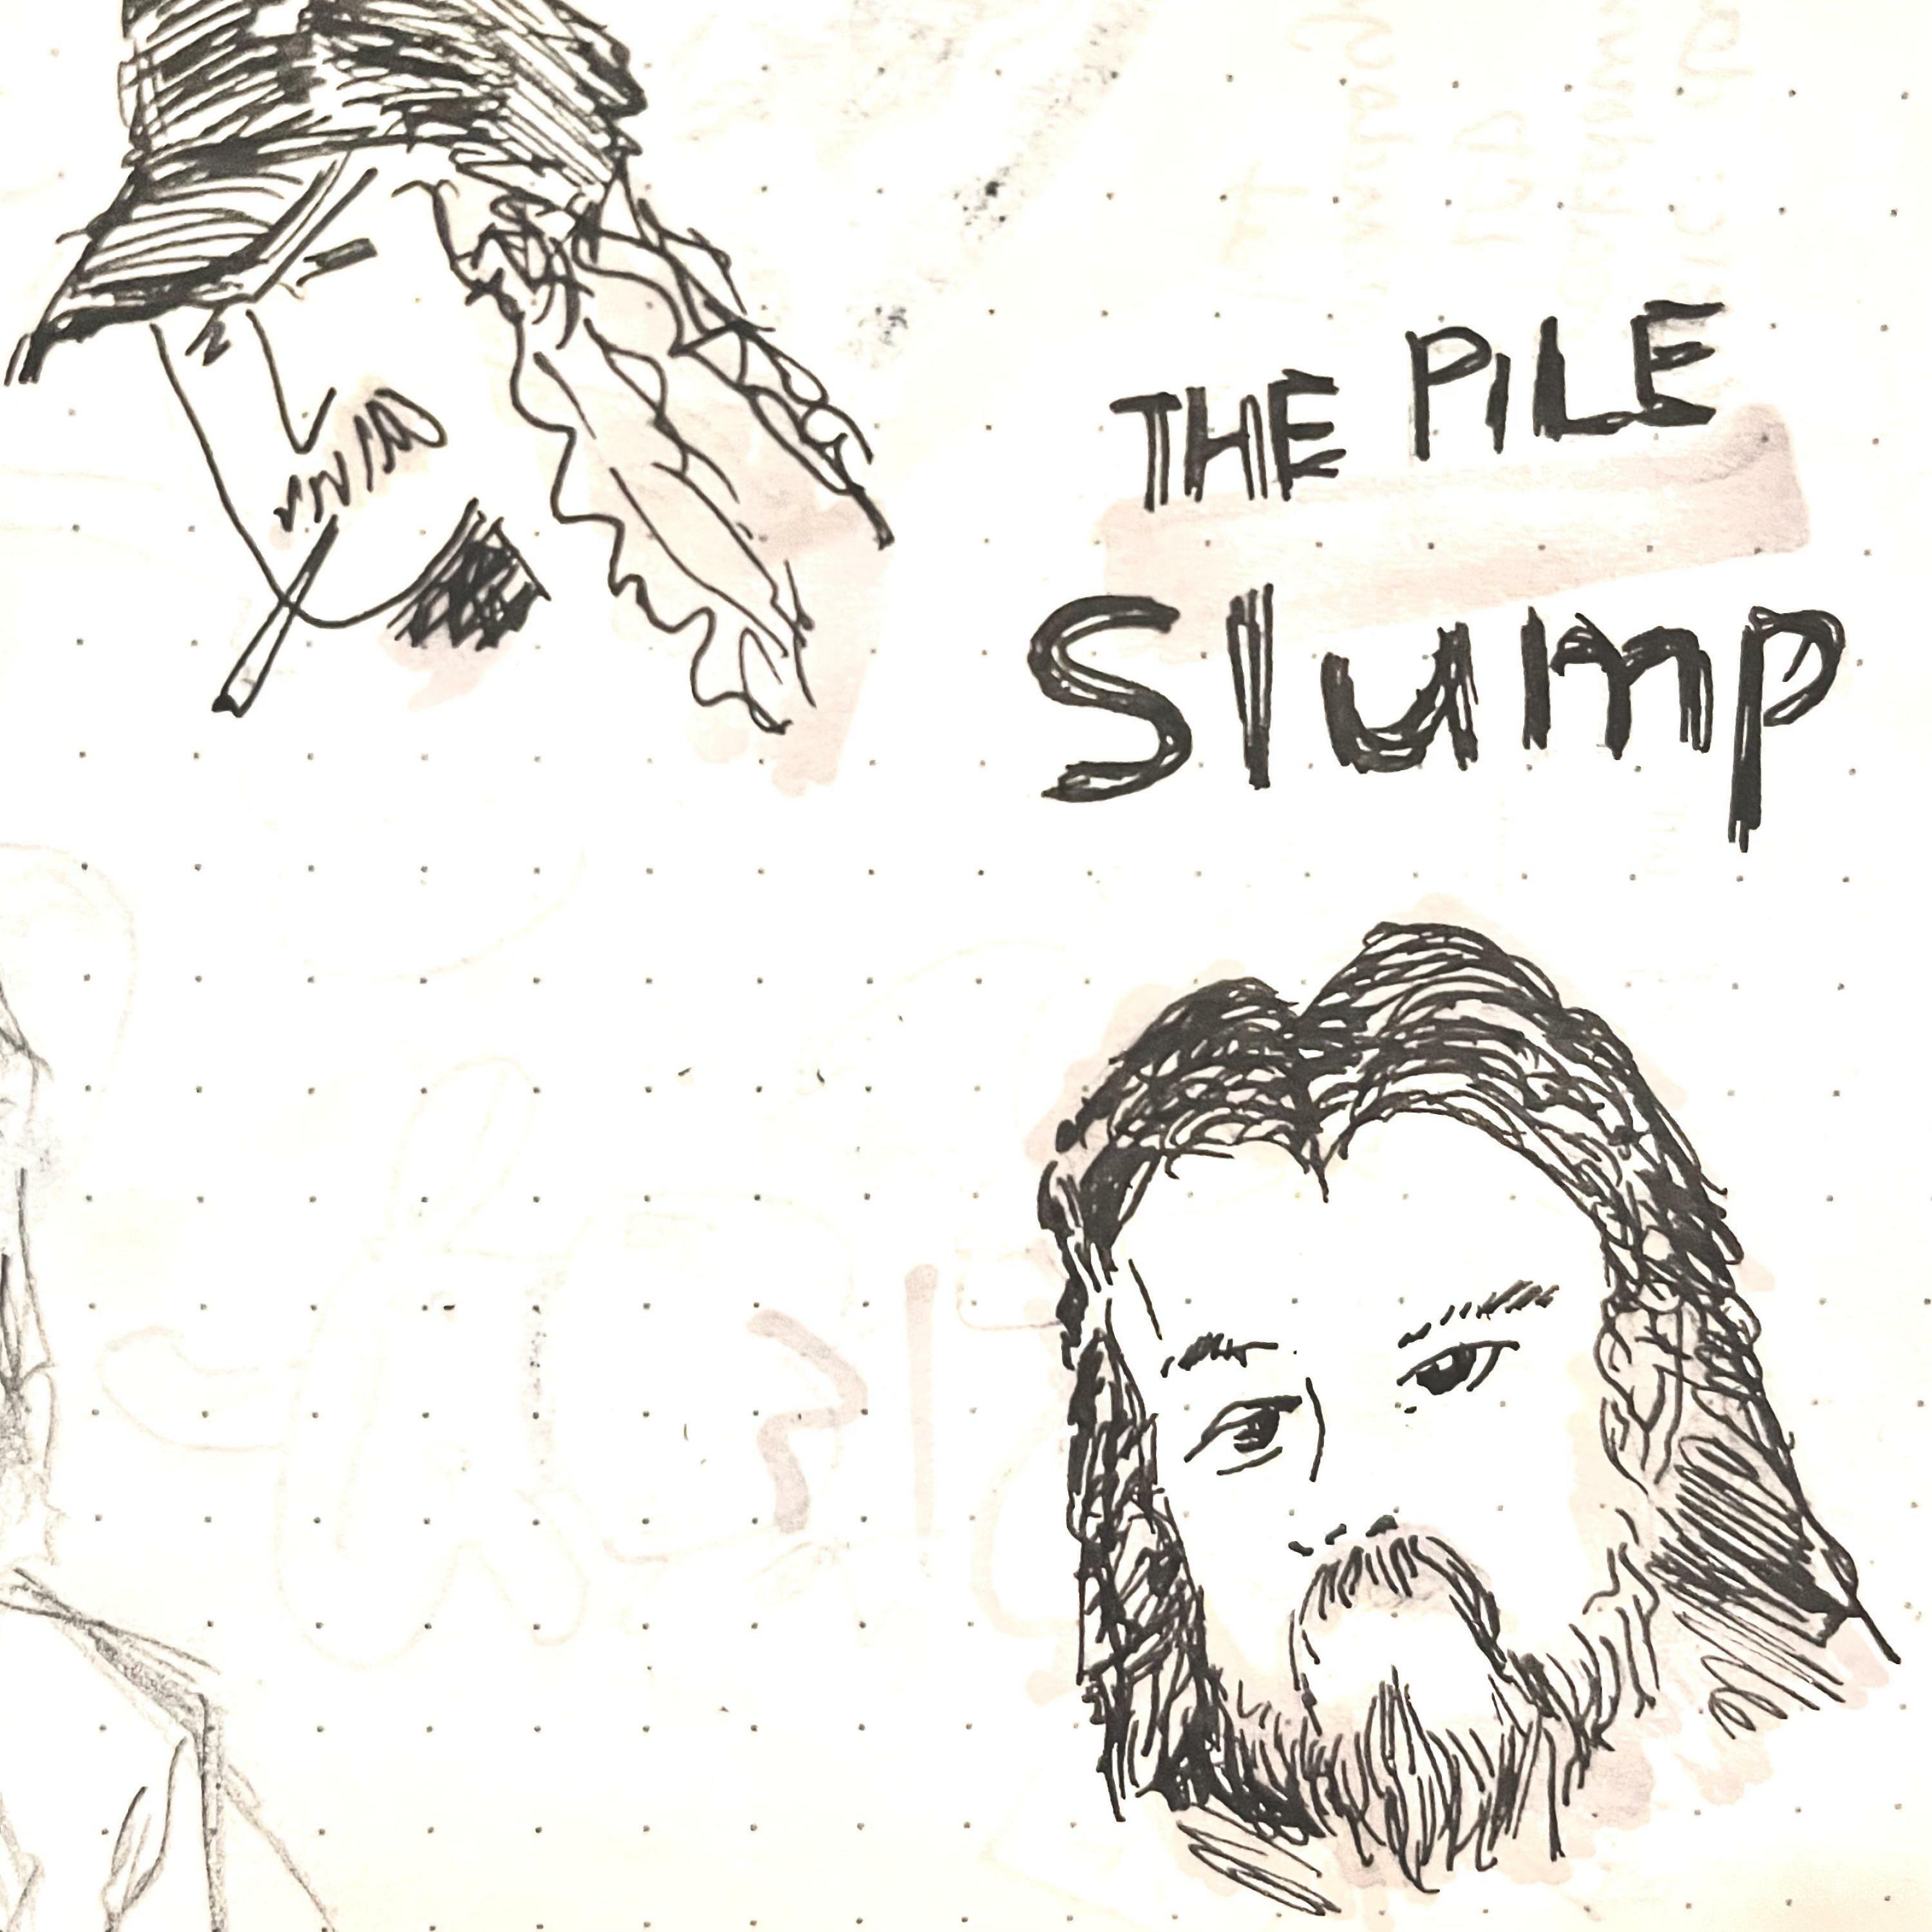 THE PILE
Slump